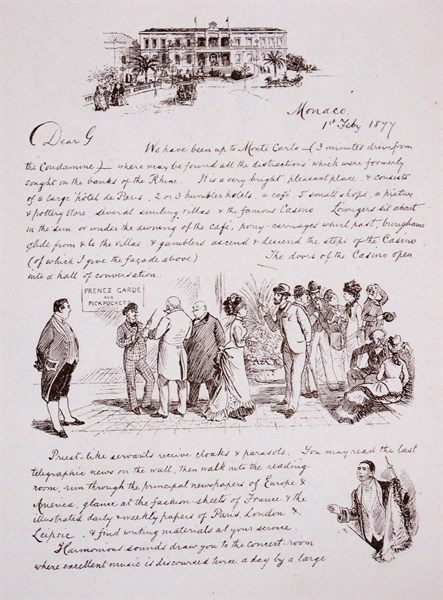 Monaco,
1st Feby 1877
Dear G
We have been up to Monte Carlo – (3 minutes drive from
the Condamine) – where may be found all the distractions which were formerly
sought on the banks of the Rhine. It is a very bright pleasant place, & consists
of a large hôtel de Paris, 2 or 3 humbler hotels, a café, 5 small shops, a picture
& pottery store several smiling villas & the famous Casino Loungers sit about
in the sun or under the awning of the café, pony-carriages whirl past, broughams
glide from & to the villas & gamblers ascend & descend the steps of the Casino
(of which I give the façade above) The doors of the Casino open
into a hall of conversation.
PRENEZ GARDE
AUX
PICKPOCKETS
Priest-like servants receive cloaks & parasols. You may read the last
telegraphic news on the wall, then walk into the reading-
room, run through the principal newspapers of Europe &
America, glance at the fashion-sheets of France & the
illustrated daily & weekly papers of Paris, London &
Leipsic, & find writing materials at your service.
Harmonious sounds draw you to the concert-room
where excellent music is discoursed twice a day by a large